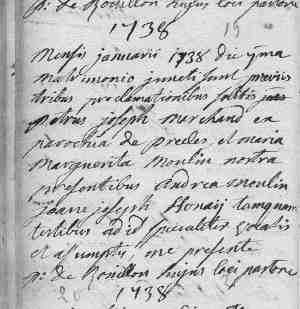 p: de Ronillon hujus loci pastore
1738
Mensis januarii 1738 die
matrimonio juncti sunt previis
tribus proclamationibus factis
Petrus joseph marchand ex
parochia de Presles, et maria
Marguerita Moulin nostra
presentibus Andrea moulin
joanne joseph tamquam
testibus ad id specialiter vocatis
et assumptis, me presente
p: de Ronillon hujus loci pastore
1738